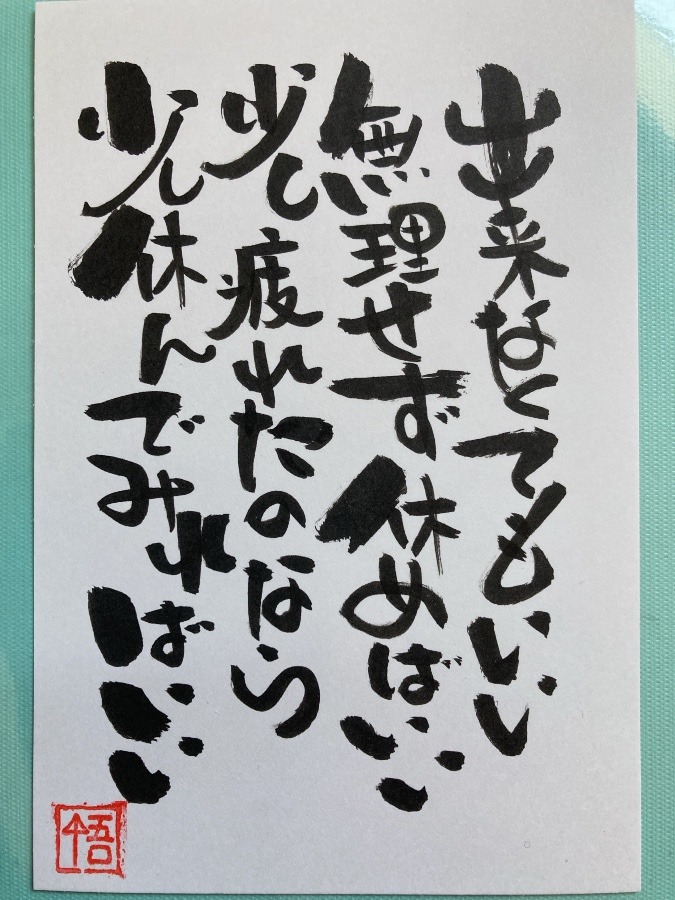 出来なくてもいい
無理せず休めばいい
少し疲れたのなら
少し休んでみればいい
悟